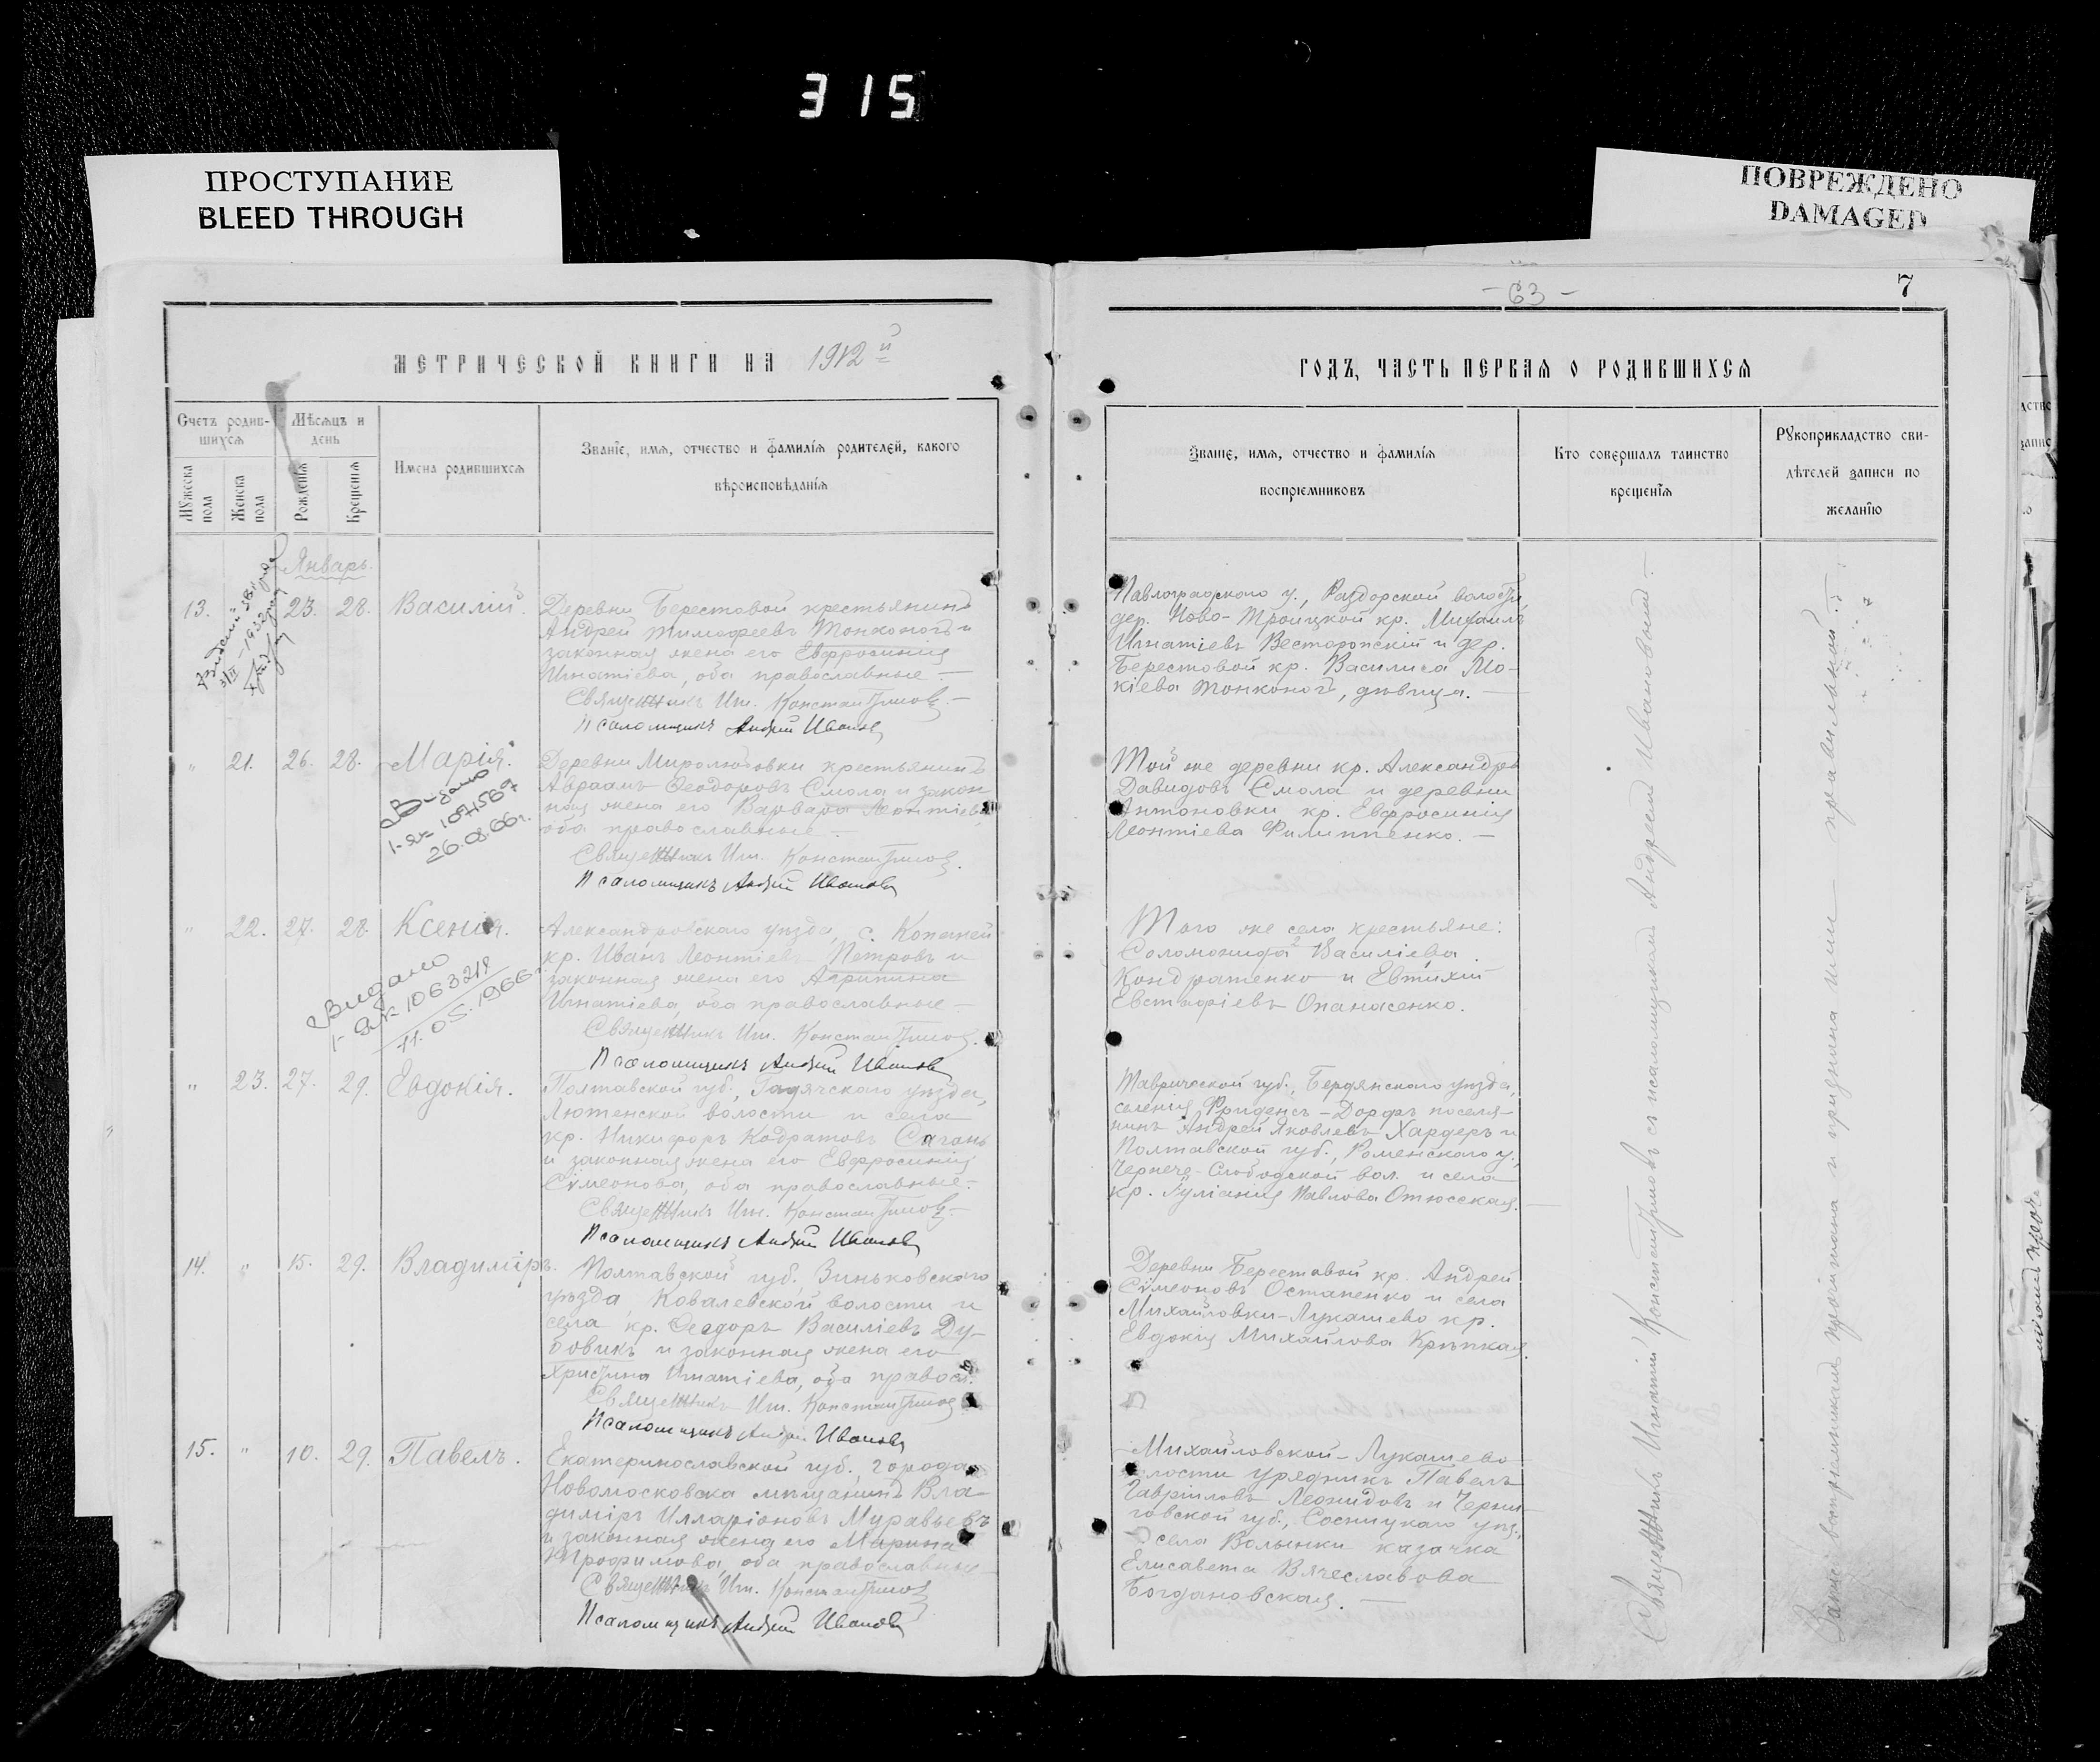 315
ПРОСТУПАНИЕ
BLEED THROUGH
ПОВРЕЖДЕНО
DAMAGED
МЕТРИЧЕСКОЙ КНИГИ НА 1912 й
Счетъ родив-
шихся
Мѣсяцъ и
день
Мужеска
пола
Женска
пола
Рожденія
Крещенія
Имена родившихся
Званіе, имя, отчество и фамилія родителей, какого
вѣроисповѣданія
Январь.
13. 23. 28. Василій.
Деревни Берестовой крестьянинъ
Андрей Тимофеевъ Тонконогъ и
законная жена его Евфросинія
Игнатіева, оба православные —
Священникъ Иг. Константиновъ —
Псаломщикъ Андрей Ивановъ
" 21. 26. 28. Марія.
Видано
1-ЯК 1074567
26.08.66г.
Деревни Миролюбовки крестьянинъ
Авраамъ Ѳеодоровъ Смола и закон
ная жена его Варвара Леонтіева
оба православные.
Священникъ Иг. Константиновъ.
Псаломщикъ Андрей Ивановъ
" 22. 27. 28. Ксенія.
Видано
1-ЯК 1063219
11.05.1966
Александровскаго уѣзда, с. Копаней
кр. Иванъ Леонтіевъ Петровъ и
законная жена его Агрипина
Игнатіева, оба православные —
Священникъ Иг. Константиновъ.
Псаломщикъ Андрей Ивановъ
" 23. 27. 29. Евдокія.
Полтавской губ., Гадячскаго уѣзда,
Лютенской волости и села
кр. Никифоръ Кодратовъ Сагань
и законная жена его Евфросинія
Сѵмеонова, оба православные —
Священникъ Иг. Константиновъ —
Псаломщикъ Андрей Ивановъ
14. " 15. 29. Владиміръ.
Полтавской губ., Зиньковскаго
уѣзда, Ковалевской волости и
села кр. Ѳеодоръ Василіевъ Ду-
бовикъ и законная жена его
Христина Игнатіева, оба правосл.
Священникъ Иг. Константиновъ
Псаломщикъ Андрей Ивановъ
15. " 10. 29. Павелъ.
Екатеринославской губ., города
Новомосковска мѣщанинъ Вла-
диміръ Илларіоновъ Муравьевъ
и законная жена его Марина
Трофимова, оба православные
Священникъ Иг. Константиновъ
Псаломщикъ Андрей Ивановъ
- 63 -
7
ГОДЪ, ЧАСТЬ ПЕРВАЯ О РОДИВШИХСЯ
Званіе, имя, отчество и фамилія
воспріемниковъ
Кто совершалъ таинство
крещенія
Рукоприкладство сви-
дѣтелей записи по
желанію
Павлоградскаго у., Раздорской волости,
дер. Ново-Троицкой кр. Михаилъ
Игнатіевъ Весторопскій и дер.
Берестовой кр. Василиса Мо-
кіева Тонконогъ, дѣвица. —
Той же деревни кр. Александръ
Давидовъ Смола и деревни
Антоновки кр. Евфросинія
Леонтіева Филиппенко. —
Того же села крестьяне:
Соломонида Василіева
Кондратенко и Евтихій
Евстафіевъ Опанасенко.
Таврической губ., Бердянскаго уѣзда,
селенія Фриденсъ-Дорфъ поселя-
нинъ Андрей Яковлевъ Хардеръ и
Полтавской губ., Роменскаго у.,
Чернече-Слободской вол. и села
кр. Іуліанія Павлова Отюсская. —
Деревни Берестовой кр. Андрей
Сѵмеоновъ Остапенко и села
Михайловки-Лукашево кр.
Евдокія Михайлова Крѣпкая.
Михайловской-Лукашево
волости урядникъ Павелъ
Гавріиловъ Леонидовъ и Черни-
говской губ., Сосницкаго уѣз.,
села Волынки казачка
Елисавета Вячеславова
Богдановская. —
Священникъ Игнатій Константиновъ съ псаломщикомъ Андреемъ Ивановымъ —